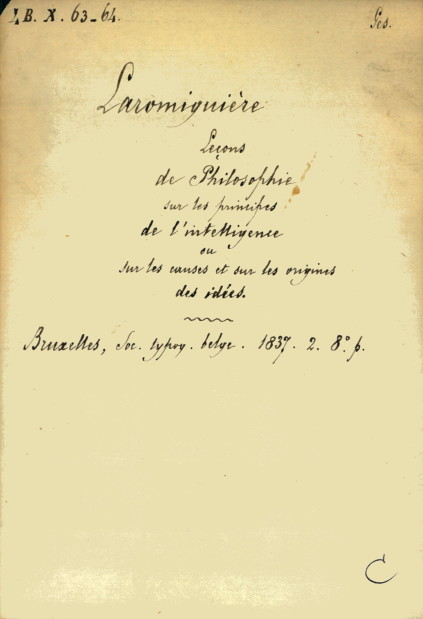 I B. X. 63-64. Ges.
Laromiguière
Leçons
de Philosophie
sur les principes
de l'intelligence
ou
sur les causes et sur les origines
des idées.
Bruxelles, Soc. typog. belge. 1837. 2. 8°. p.
C